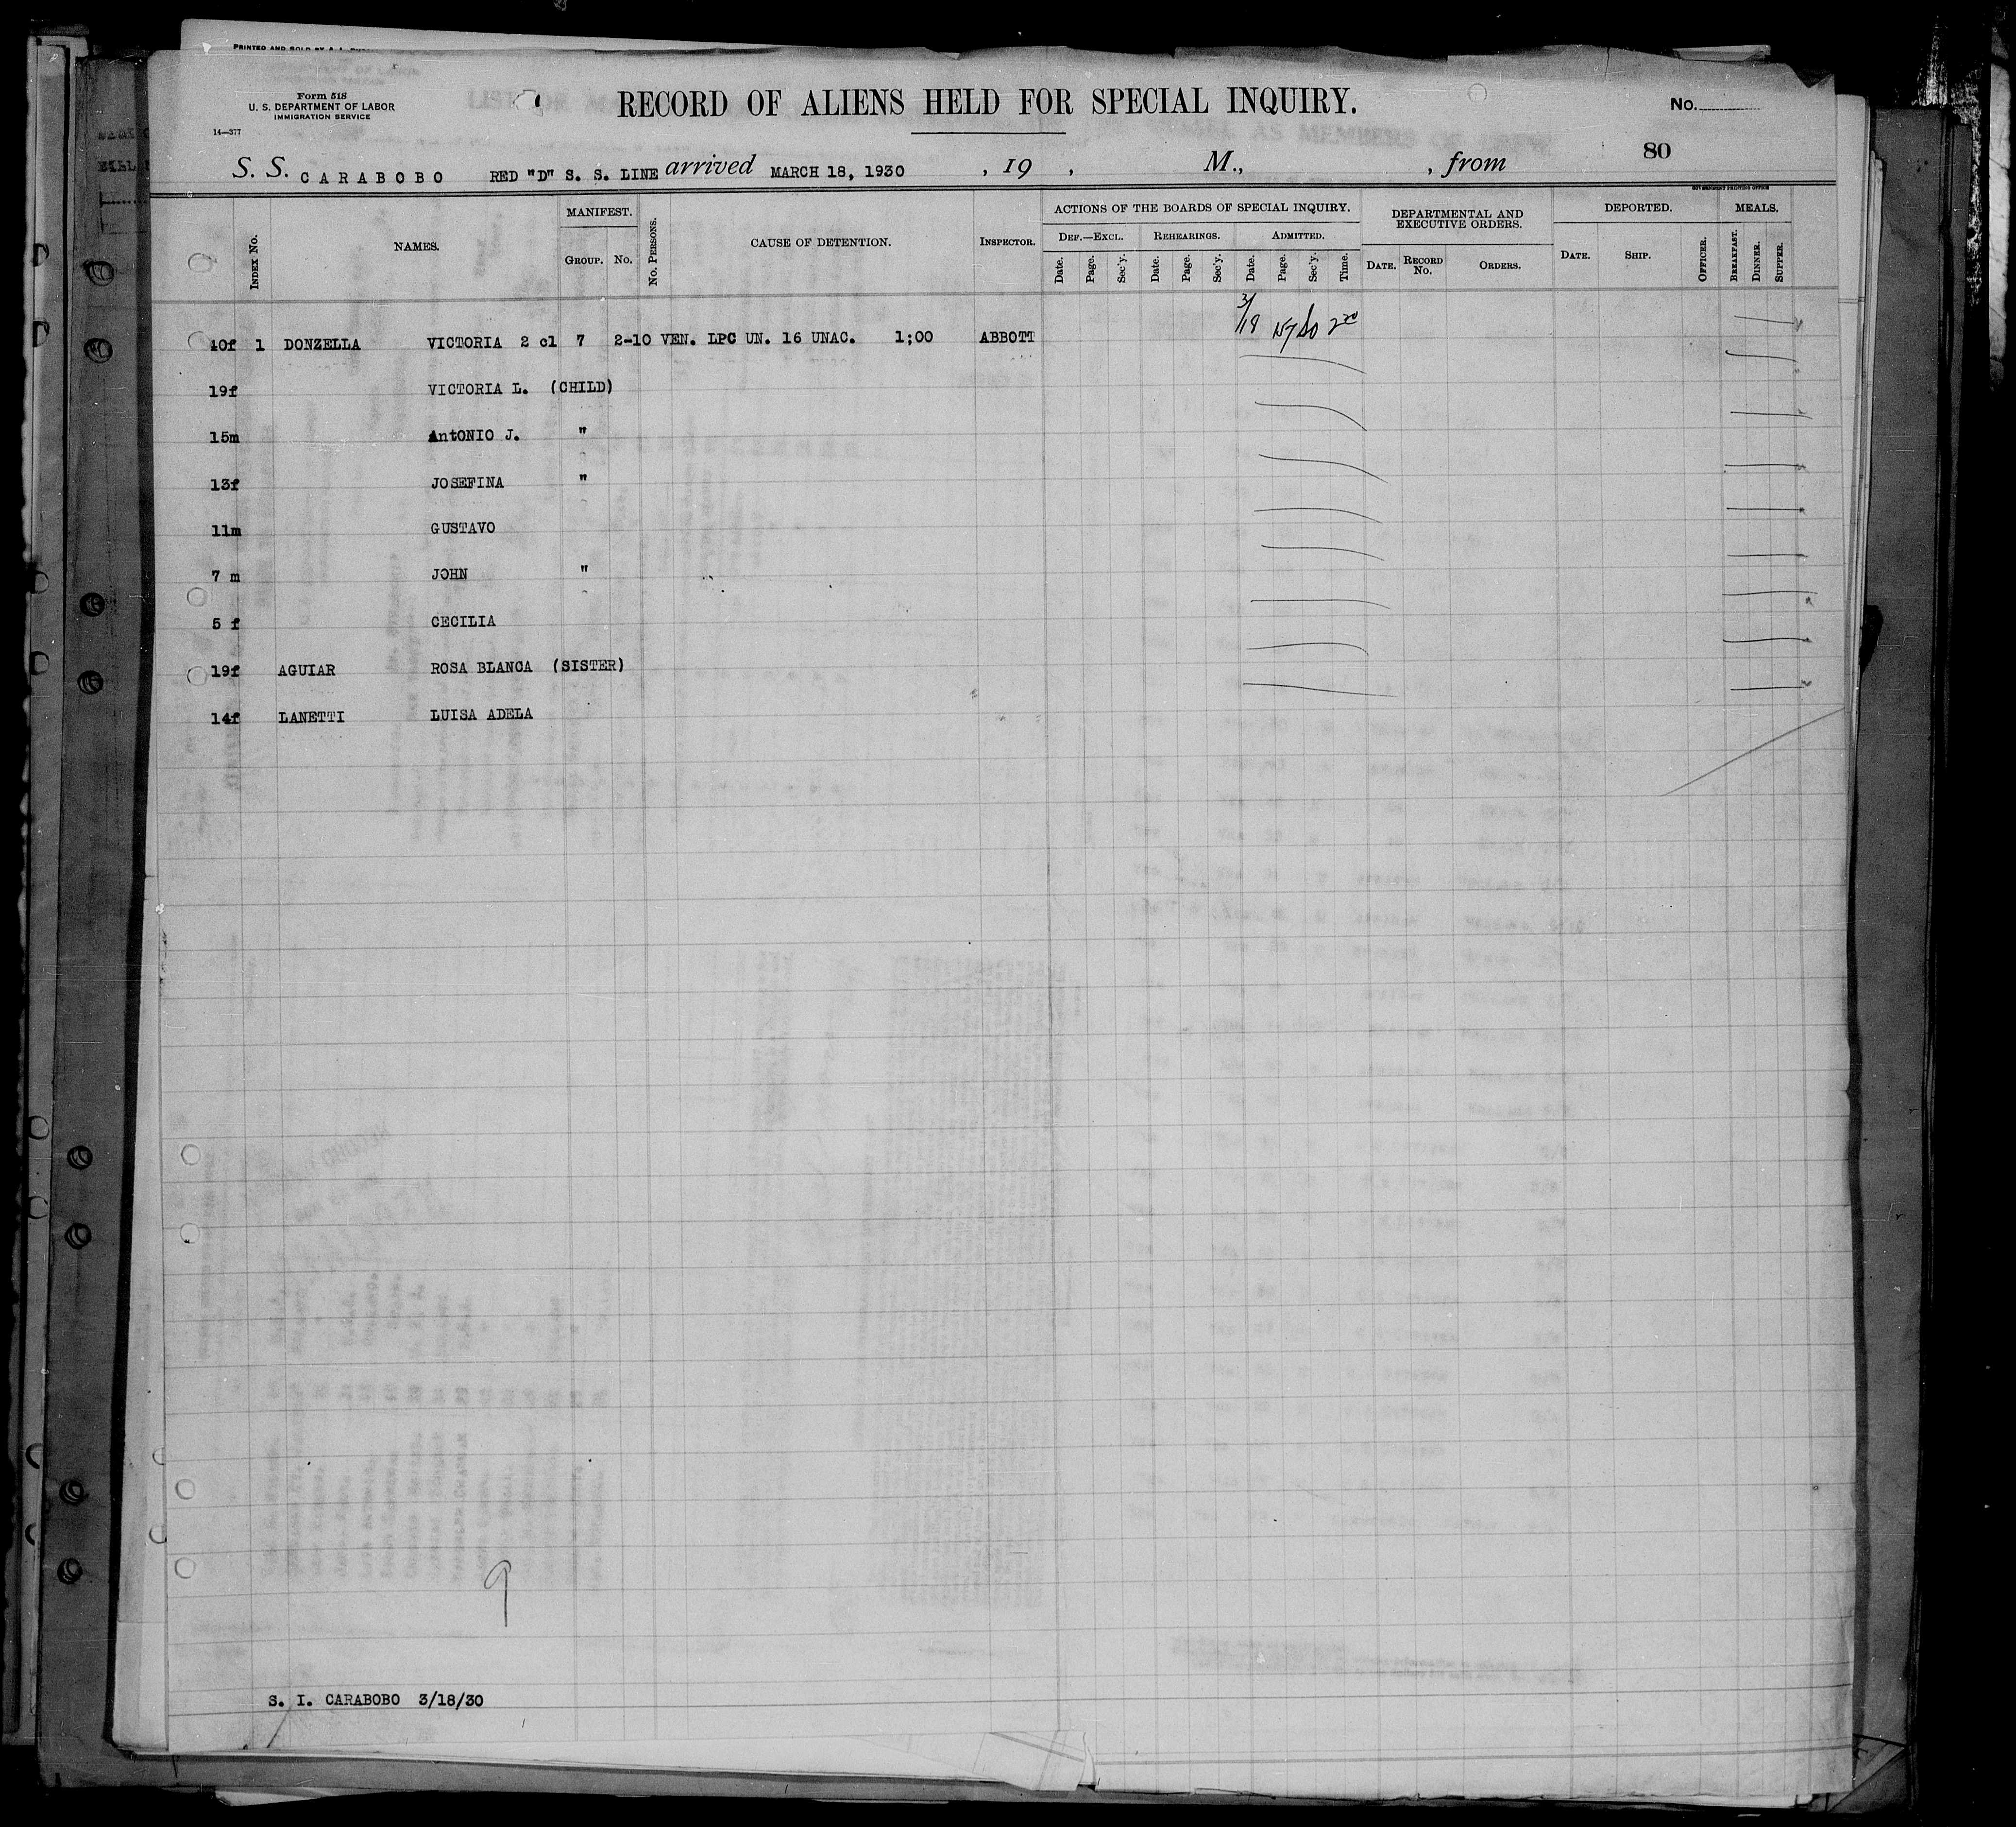 PRINTED AND SOLD BY A. L.
Form 518
U. S. DEPARTMENT OF LABOR
IMMIGRATION SERVICE
14—377
RECORD OF ALIENS HELD FOR SPECIAL INQUIRY.
No.
80
S. S. CARABOBO RED "D" S. S. LINE arrived MARCH 18, 1930 , 19 , M., , from
GOVERNMENT PRINTING OFFICE
INDEX NO. NAMES. MANIFEST. GROUP. NO. NO. PERSONS. CAUSE OF DETENTION. INSPECTOR. ACTIONS OF THE BOARDS OF SPECIAL INQUIRY. DEPARTMENTAL AND EXECUTIVE ORDERS. DEPORTED. MEALS.
DEF.—EXCL. REHEARINGS. ADMITTED.
Date. Page. Sec'y. Date. Page. Sec'y. Date. Page. Sec'y. Time. DATE. RECORD NO. ORDERS. DATE. SHIP. OFFICER. BREAKFAST. DINNER. SUPPER.
40f 1 DONZELLA VICTORIA 2 cl 7 2-10 VEN. LPC UN. 16 UNAC. 1;00 ABBOTT 3/19
19f VICTORIA L. (CHILD)
15m AntONIO J. "
13f JOSEFINA "
11m GUSTAVO
7 m JOHN "
5 f CECILIA
19f AGUIAR ROSA BLANCA (SISTER)
14f LANETTI LUISA ADELA
9
S. I. CARABOBO 3/18/30